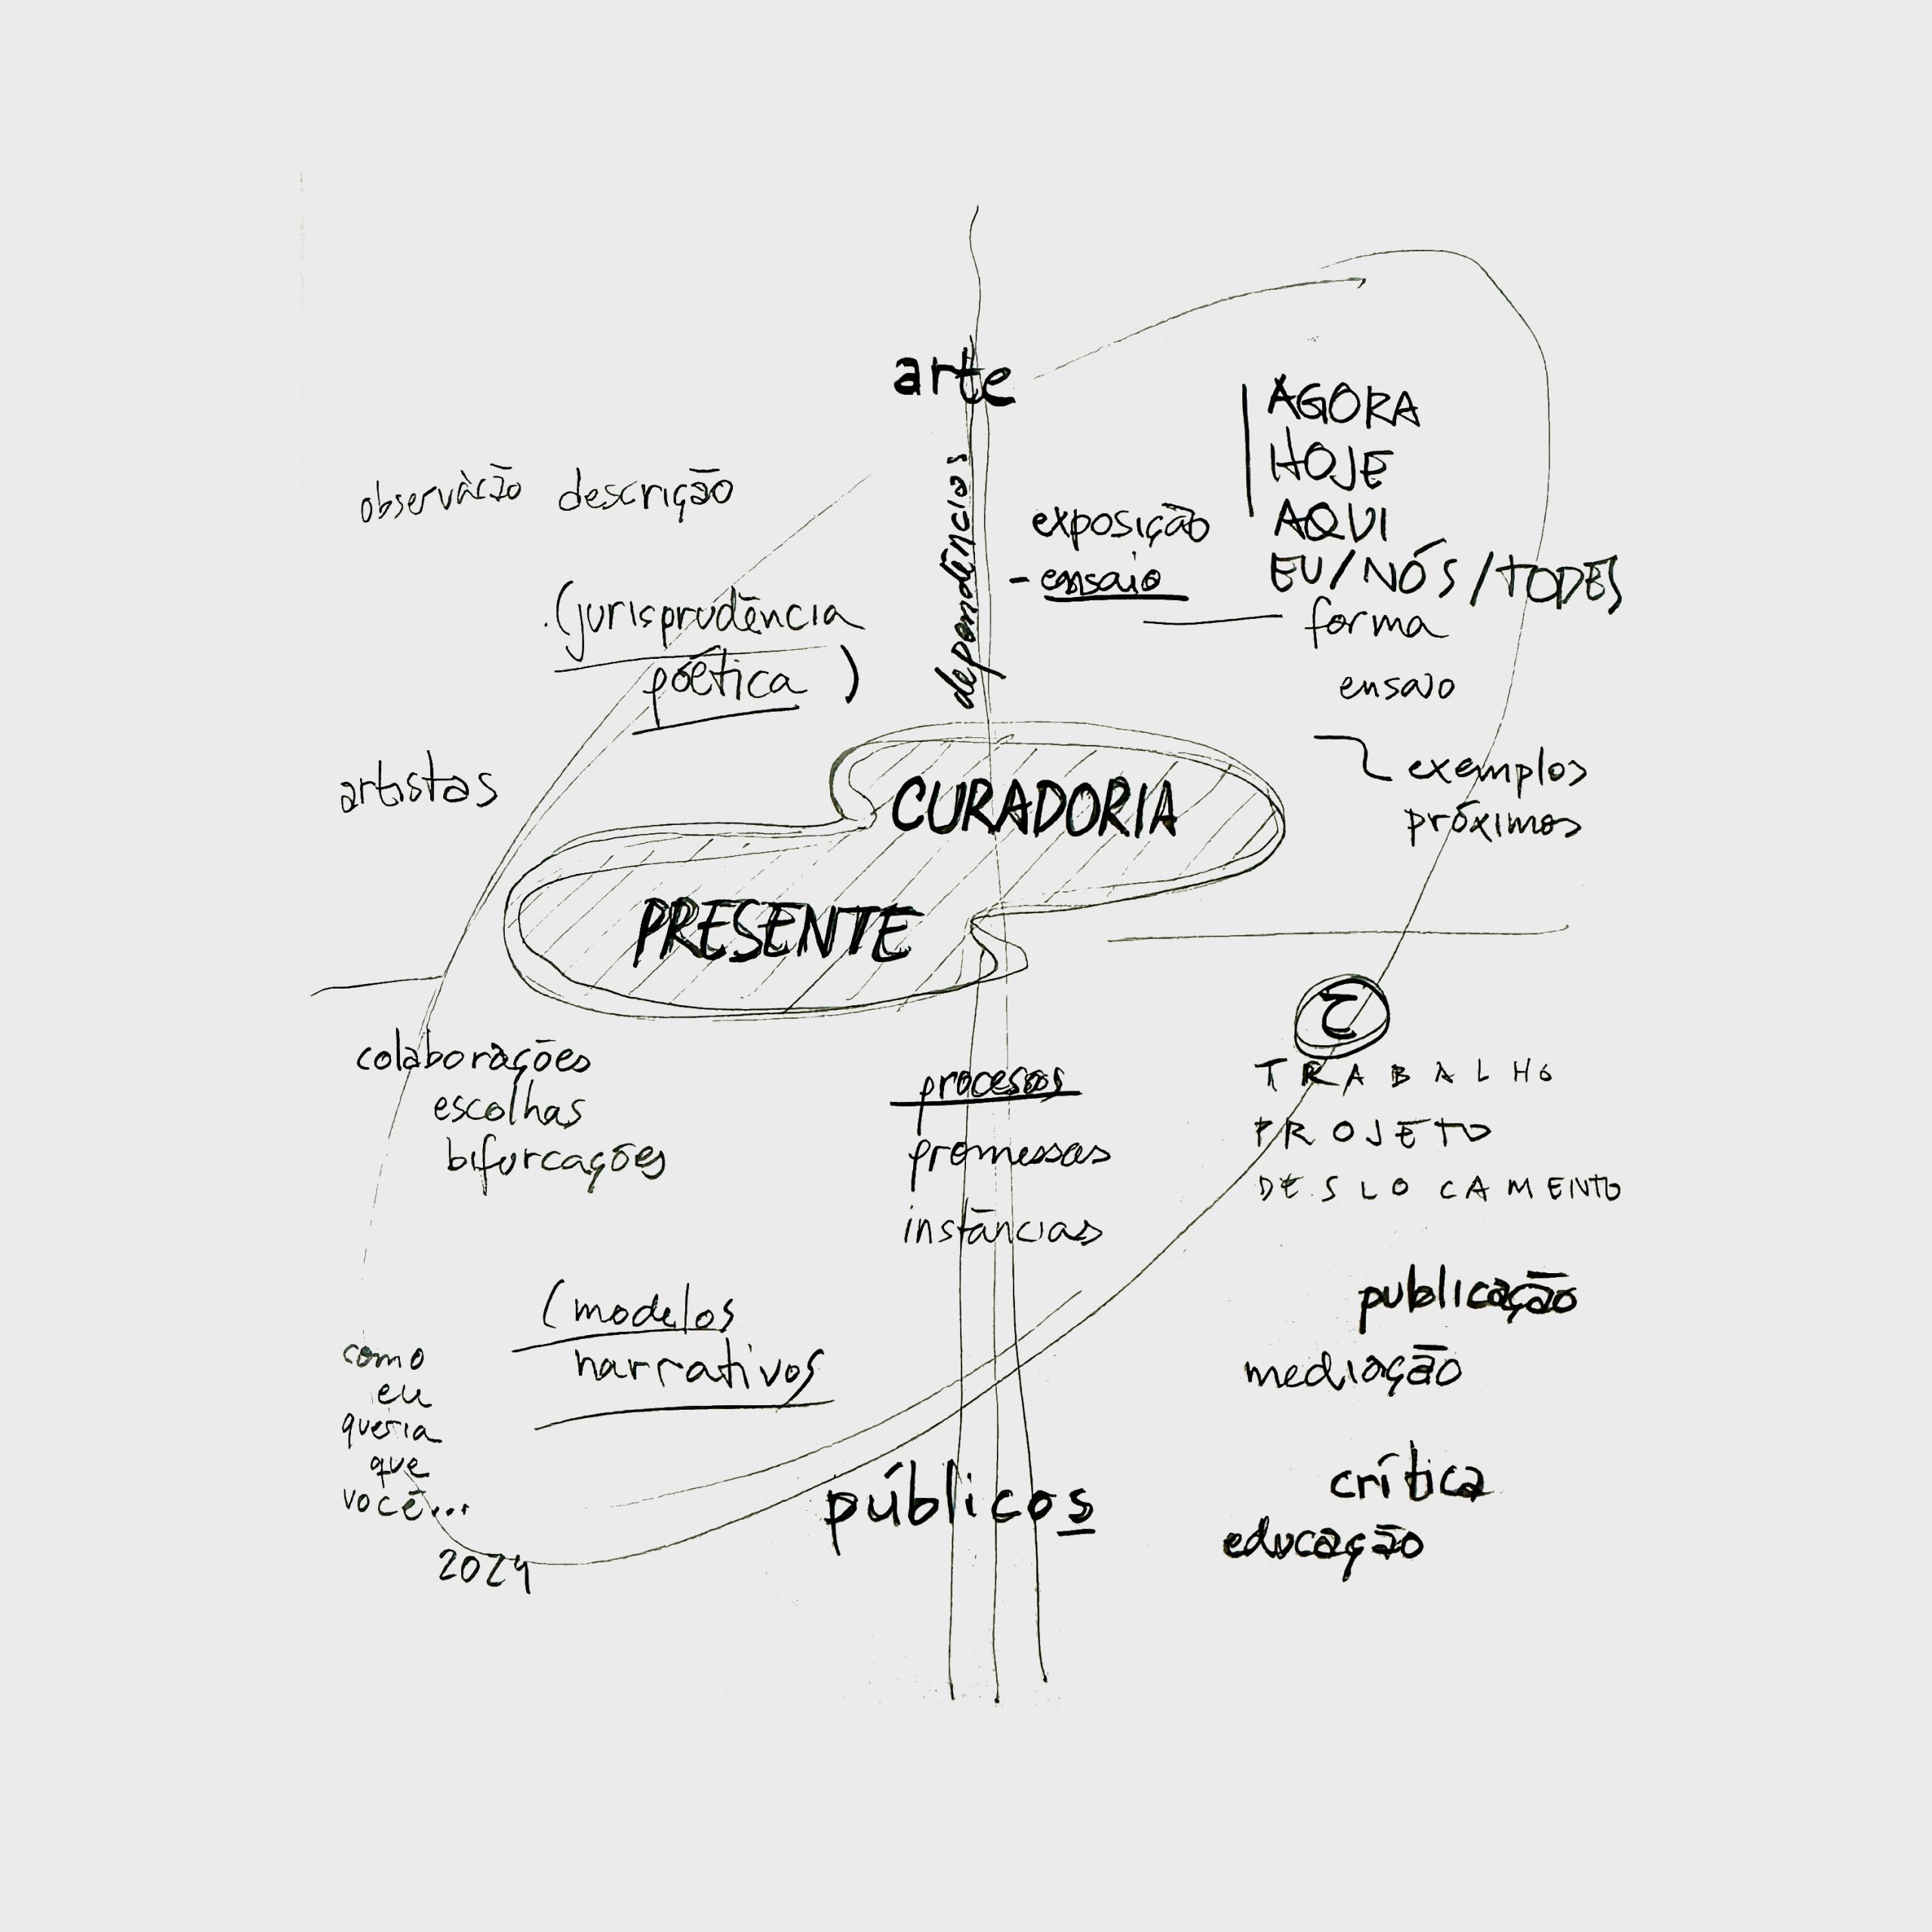 arte
dependências
observação descrição
(jurisprudência
poética)
artistas
exposição
- ensaio
AGORA
HOJE
AQUI
EU/NÓS/TODES
forma
ensaio
exemplos
próximos
CURADORIA
PRESENTE
colaborações
escolhas
bifurcações
procesos
promessas
instâncias
TRABALHO
PROJETO
DESLOCAMENTO
(modelos
narrativos
como
eu
queria
que
você...
2024
públicos
publicação
mediação
crítica
educação